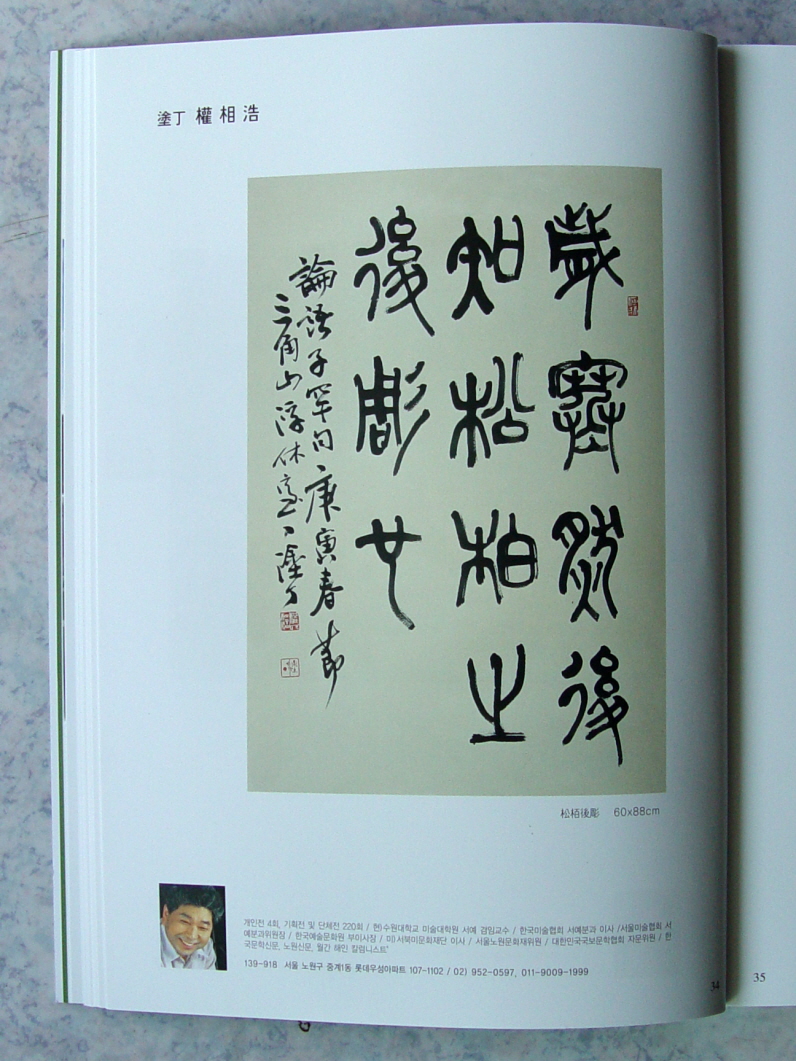 塗丁 權相浩
歲寒然後
知松柏之
後彫也
論語子罕句 庚寅春節
三角山浮休 塗丁
松栢後彫 60x88cm
개인전 4회, 기획전 및 단체전 220회 / 현)수원대학교 미술대학원 서예 겸임교수 / 한국미술협회 서예분과 이사 /서울미술협회 서
예분과위원장 / 한국예술문화원 부이사장 / 미)서북미문화재단 이사 / 서울노원문화재위원 / 대한민국국보문학협회 자문위원 / 한
국문학신문, 노원신문, 월간 해인 칼럼니스트
139-918 서울 노원구 중계1동 롯데우성아파트 107-1102 / 02) 952-0597, 011-9009-1999
34
35